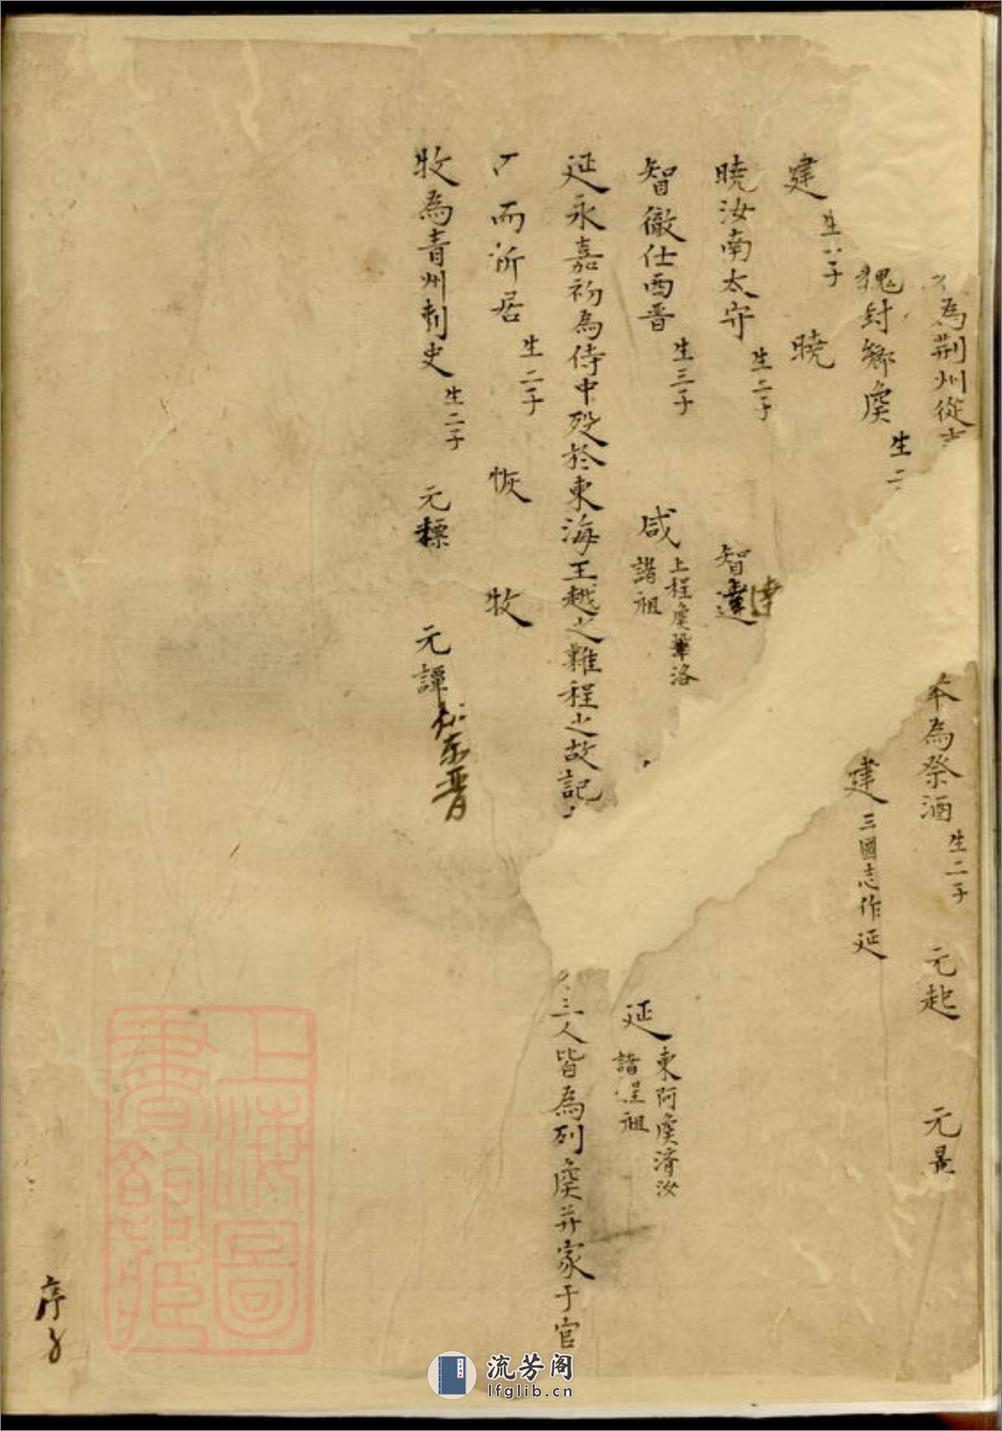 為荆州從
本為祭酒 生二子 元起 元晃
封鄉矦 生二
建 三國志作延
建 生八子 曉
曉汝南太守 生二子 智達
智徹仕西晉 生三子 咸 上程矦 洛諸祖
延 東阿矦濟汝諸程祖
延永嘉初為侍中歿於東海王越之難程之故記
三人皆為列矦并家于官
而所居 生二子 恢 牧
牧為青州刺史 生二子 元標 元譚 仕東晋
序
上海圖書館藏
流芳阁
lfglib.cn